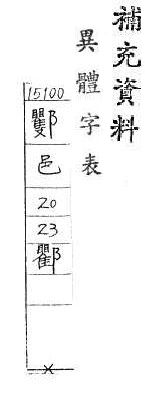 補充資料
異體字表
15100
邑
20
23